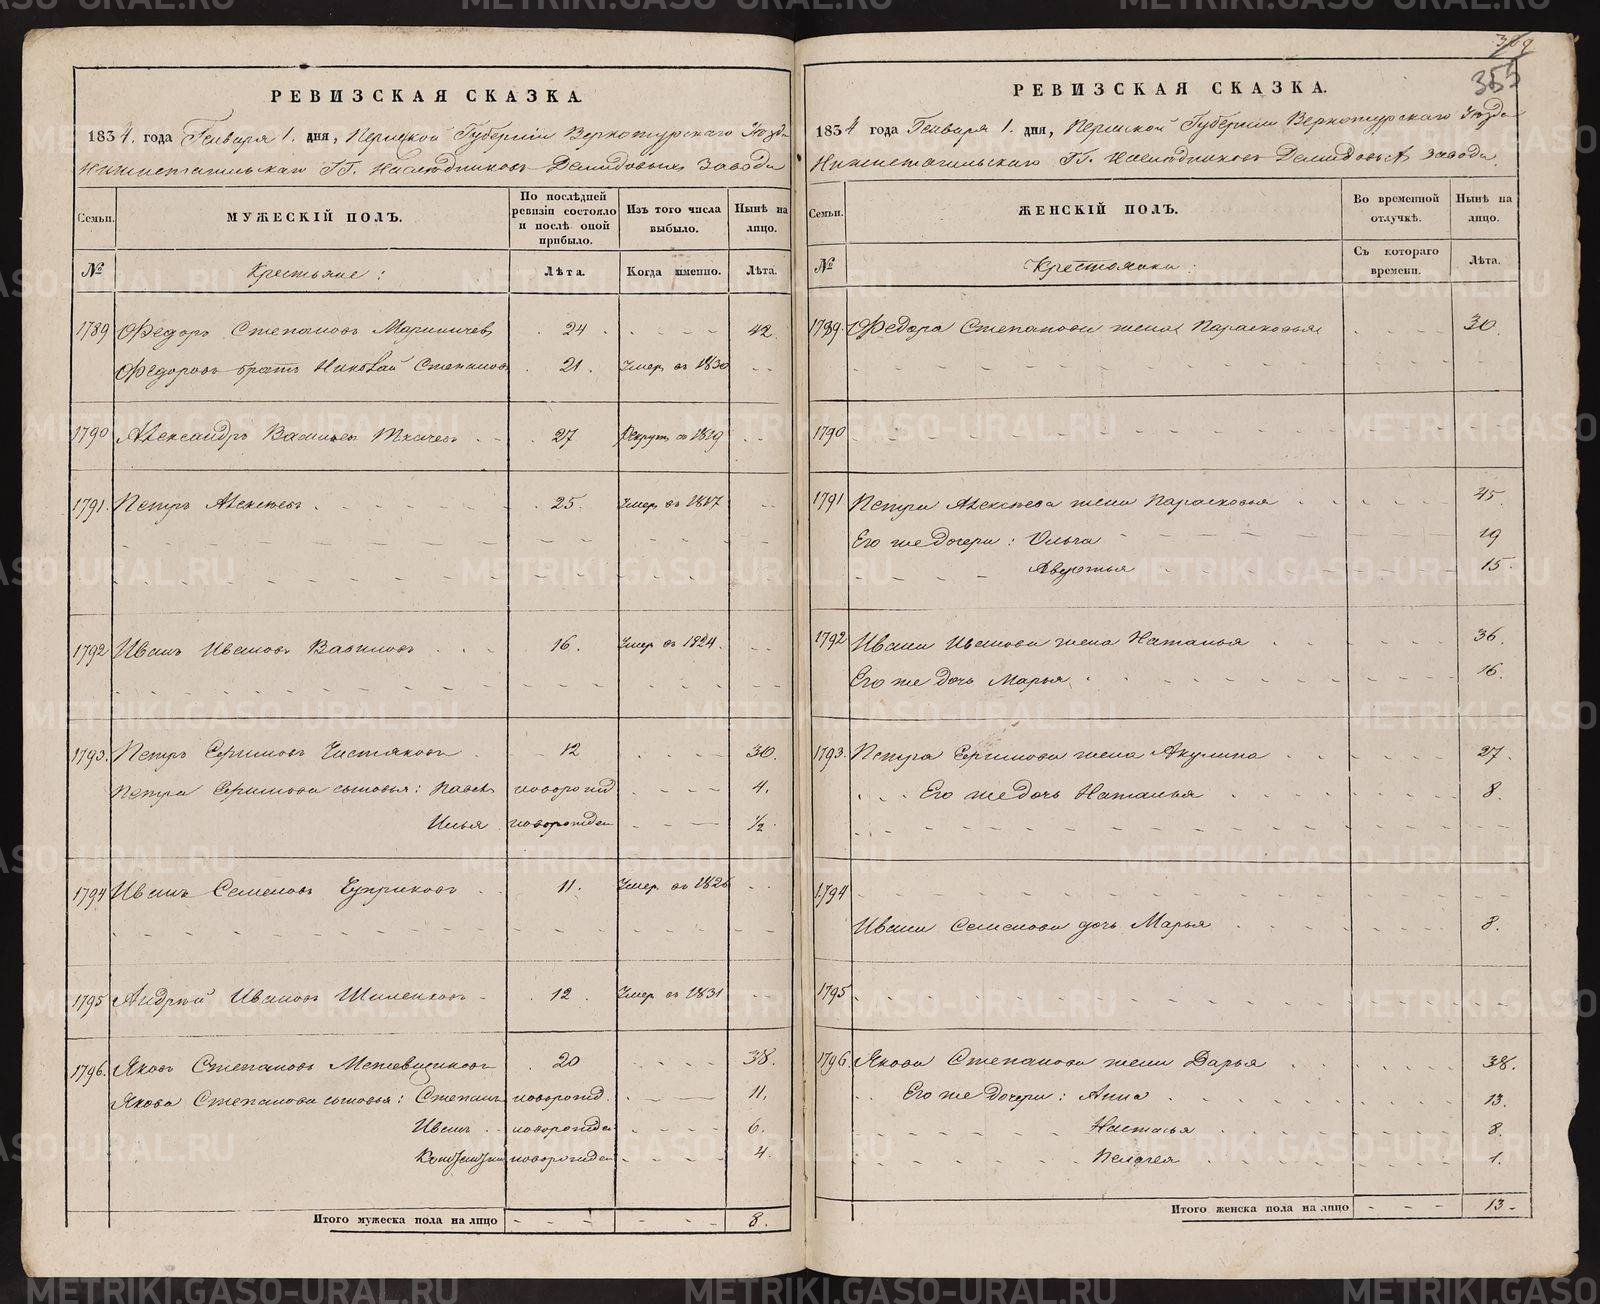 РЕВИЗСКАЯ СКАЗКА.
1834. года Генваря 1. дня, Пермской Губернии Верхотурскаго Уезда
Нижнетагильскаго ГГ. Наследниковъ Демидовыхъ завода
Семьи.
МУЖЕСКІЙ ПОЛЪ.
По послѣдней ревизіи состояло и послѣ оной прибыло.
Изъ того числа выбыло.
Нынѣ на лицо.
№
Крестьяне:
Лѣта.
Когда именно.
Лѣта.
1789 Федоръ Степановъ 24 42
Федоровъ братъ Николай Степановъ 21. Умер. въ 1830
1790 Александръ Васильевъ Ткачевъ 27 Рекрут. въ 1819
1791. Петръ Алексѣевъ 25. Умер. въ 1827
1792 Иванъ Ивановъ Вавиловъ 16. Умер. въ 1824.
1793. Петръ Ефимовъ Чистяковъ 12 30.
Петра Ефимова сыновья: Павелъ новорожд. 4.
Илья новорожден 1/2
1794 Иванъ Семеновъ 11. Умер. въ 1826
1795 Андрей Ивановъ 12. Умер. въ 1831
1796. Яковъ Степановъ 20 38.
Якова Степанова сыновья: Степанъ новорожд. 11.
Иванъ новорожден 6.
новорожден 4.
Итого мужеска пола на лицо 8.
309
355
РЕВИЗСКАЯ СКАЗКА.
1834 года Генваря 1. дня, Пермской Губернии Верхотурскаго Уезда
Нижнетагильскаго ГГ. Наследниковъ Демидовыхъ завода
Семьи.
ЖЕНСКІЙ ПОЛЪ.
Во временной отлучкѣ.
Нынѣ на лицо.
№
Крестьянки:
Съ котораго времени.
Лѣта.
1789. Федора Степанова жена Парасковья 30.
1790
1791 Петра Алексѣева жена Парасковья 45.
Его же дочери: Ольга 19
Авдотья 15.
1792 Ивана Иванова жена Наталья 36.
Его же дочь Марья 16.
1793. Петра Ефимова жена Акулина 27.
Его же дочь Наталья 8.
1794
Ивана Семенова дочь Марья 8.
1795
1796 Якова Степанова жена Дарья 38.
Его же дочери: Анна 13.
Настасья 8.
Пелагея 1.
Итого женска пола на лицо 13.
METRIKI.GASO-URAL.RU